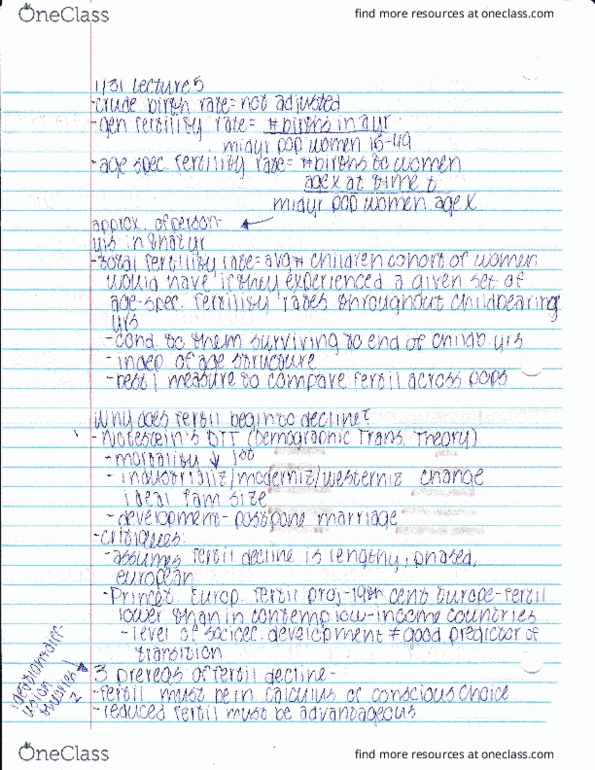 OneClass
find more resources at oneclass.com
1/31 Lecture 5
-crude birth rate = not adjusted
-gen fertility rate = # births in a yr
midyr pop women 15-49
-age spec. fertility rate = # births to women
age x at time t
midyr pop women age x
approx. of person-
yrs in that yr
-total fertility rate = avg # children cohort of women
would have if they experienced a given set of
age-spec. fertility rates throughout childbearing
yrs
-cond. to them surviving to end of childb. yrs
-indep of age structure
-best 1 measure to compare fertil across pops
Why does fertil begin to decline?
-Notestein's DTT (Demographic Trans. Theory)
-mortality ↓ 1st
-industrializ/moderniz/westerniz change
ideal fam size
-development- postpone marriage
-critiques:
-assumes fertil decline is lengthy, phased,
european
-Princet. Europ. fertil proj-19th cent Europe-fertil
lower than in contemp low-income countries
-level of socioec. development ≠ good predictor of
transition
ideation+diff-
usion
2
3 prereqs of fertil decline-
-fertil must be in calculus of conscious choice
-reduced fertil must be advantageous
OneClass
find more resources at oneclass.com